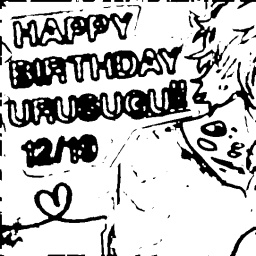 HAPPY
BIRTHDAY
URUSUGU!!
12/19